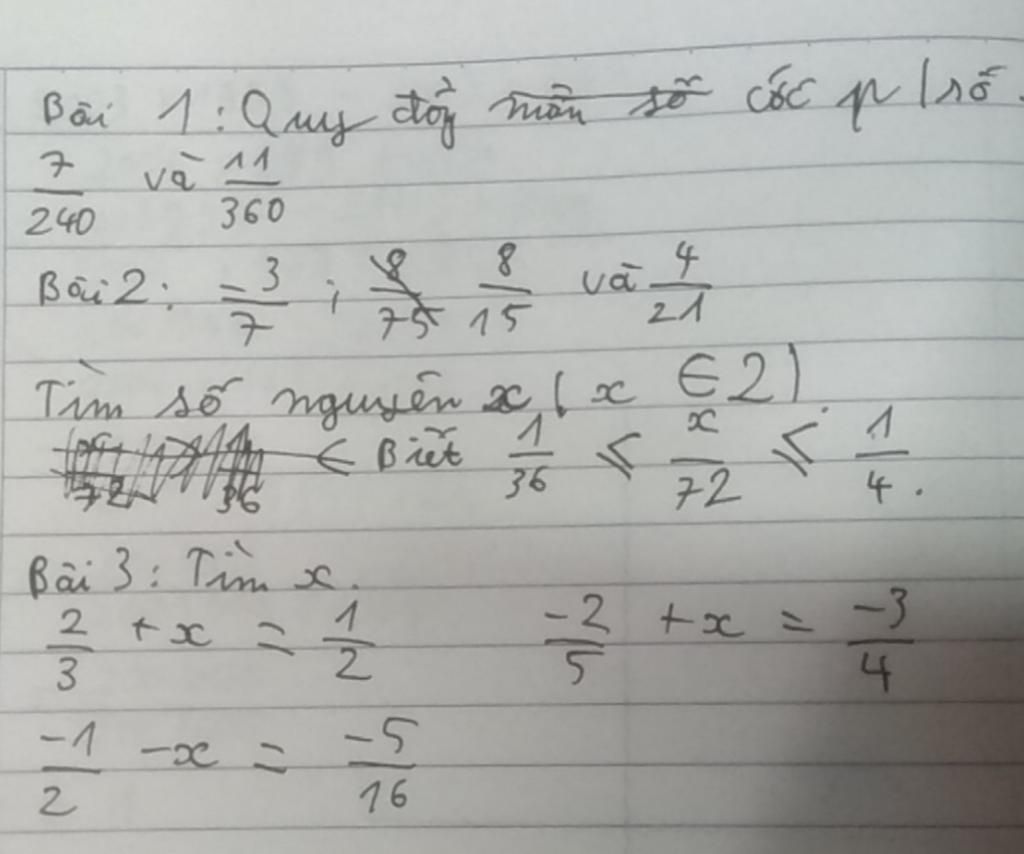 Bài 1: Quy đồng mẫu số các p/số.
7/240 và 11/360
Bài 2: -3/7 ; 8/75 8/15 và 4/21
Tìm số nguyên x ( x ∈ Z )
Biết 1/36 ≤ x/72 ≤ 1/4.
Bài 3: Tìm x.
2/3 + x = 1/2 -2/5 + x = -3/4
-1/2 - x = -5/16